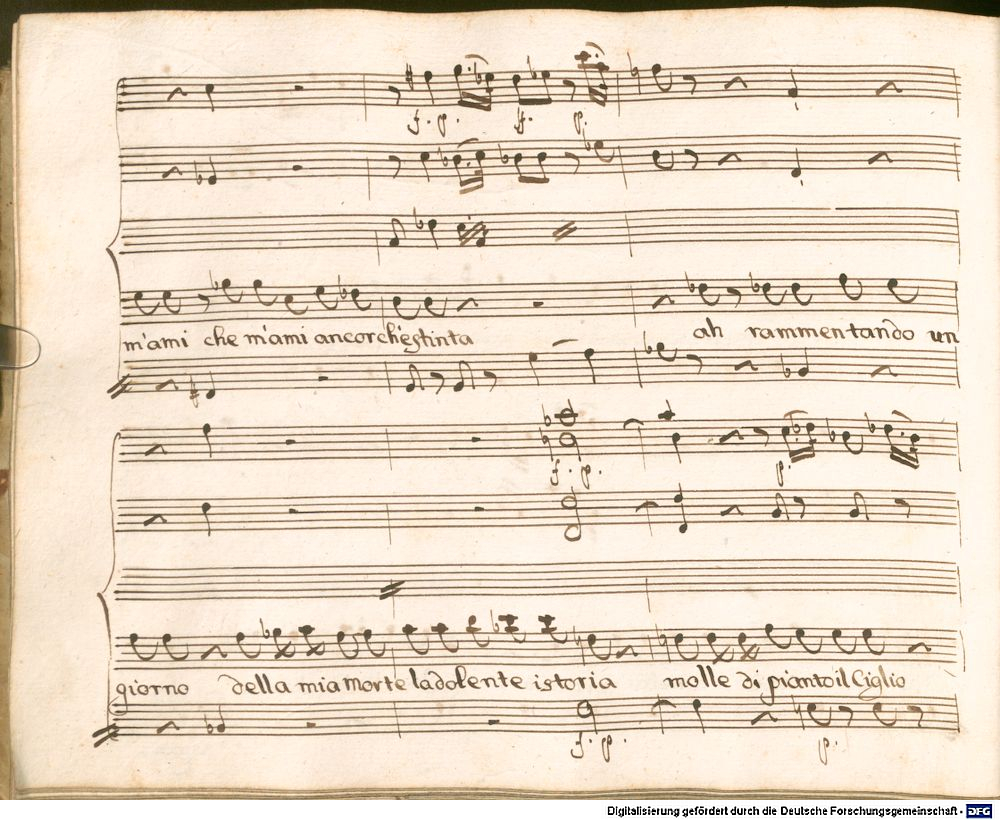 f. p. f. p.
m'ami che m'ami ancorch'estinta ah rammentando un
f. p. p.
giorno della mia morte la dolente istoria molle di pianto il Ciglio
f. p. p.
Digitalisierung gefördert durch die Deutsche Forschungsgemeinschaft - DFG